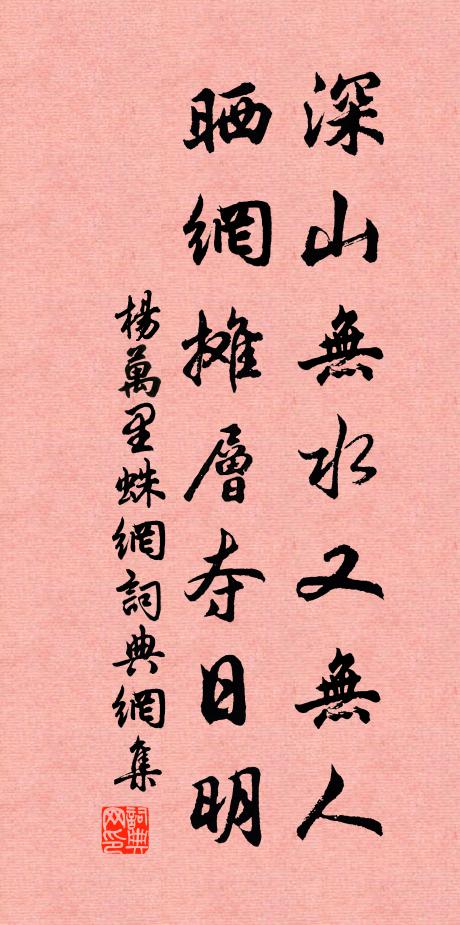 深山無水又無人
晒網摊層夺日明
楊萬里蛛網詞典網集
詞典网印